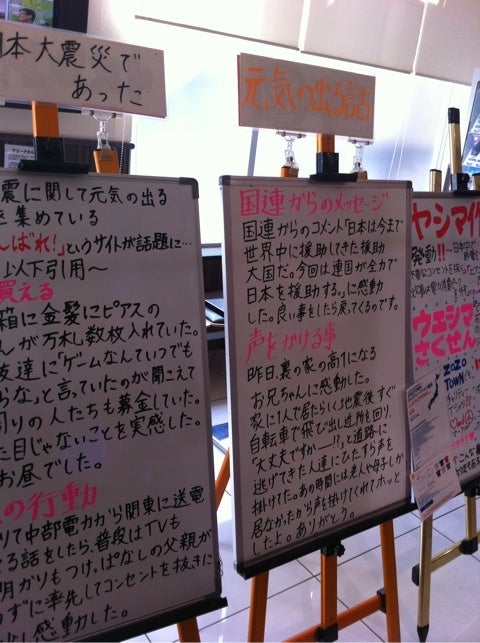 本大震災で
あった
震に関して元気の出る
集めている
んばれ!」というサイトが話題に…
以下引用〜
買える
箱に金髪にピアスの
んが万札数枚入れていた。
友達に「ゲームなんていつでも
らな」と言っていたのが聞こえて
周りの人たちも募金していた。
た目じゃないことを実感した。
お昼でした。
の行動
中部電力から関東に送電
る話をしたら、普段はTVも
明かりもつけっぱなしの父親が
わずに率先してコンセントを抜きに
し感動した。
元気の出る話
国連からのメッセージ
国連からのコメント「日本は今まで
世界中に援助してきた援助
大国だ。今回は連国が全力で
日本を援助する。」に感動
した。良い事をしたら戻ってくるのです。
声をかける事
昨日、裏の家の高1になる
お兄ちゃんに感動した。
家に1人で居たらしく地震後すぐ
自転車で飛び出し近所を回り、
「大丈夫ですかー!?」と道路に
逃げてきた人達にひたすら声を
掛けてた。あの時間には老人や母子しか
居なかったから声掛けてくれてホッと
したよ。ありがとう。
ヤシマ作
発動!!
ウエシマ
さくせん
ZOZO
TOWN